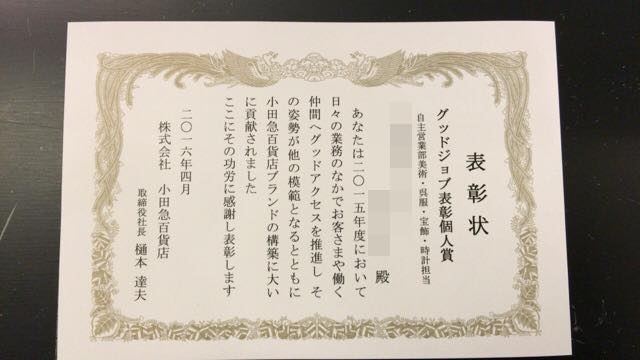 表彰状
グッドジョブ表彰個人賞
自主営業部美術・呉服・宝飾・時計担当
殿
あなたは二〇一五年度において
日々の業務のなかでお客さまや働く
仲間へグッドアクセスを推進し そ
の姿勢が他の模範となるとともに
小田急百貨店ブランドの構築に大い
に貢献されました
ここにその功労に感謝し表彰します
二〇一六年四月
株式会社 小田急百貨店
取締役社長 樋本 達夫